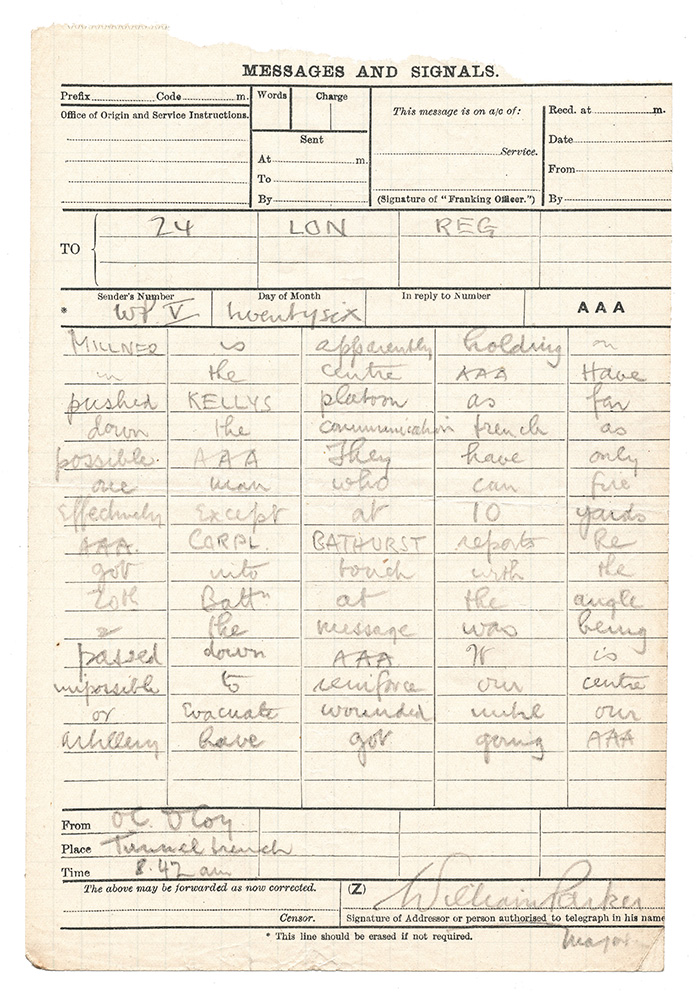 MESSAGES AND SIGNALS.
Prefix Code m. Words Charge This message is on a/c of: Recd. at m.
Office of Origin and Service Instructions. Sent Service. Date
At m. From
To
By (Signature of "Franking Officer.") By
TO 24 LON REG
Sender's Number Day of Month In reply to Number AAA
* WP V twentysix
MILLNER is apparently holding on
in the centre AAA Have
pushed KELLYS platoon as far
down the communication trench as
possible. AAA They have only
one man who can fire
Effectively Except at 10 yards
AAA. CORPL. BATHURST reports he
got into touch with the
20th Battn at the angle
& the message was being
passed down AAA It is
impossible to reinforce our centre
or Evacuate wounded until our
artillery have got going AAA
From OC. D Coy.
Place Tunnel trench
Time 8.42 am
The above may be forwarded as now corrected. (Z) William Parker
Censor. Signature of Addressor or person authorised to telegraph in his name
* This line should be erased if not required. Major.